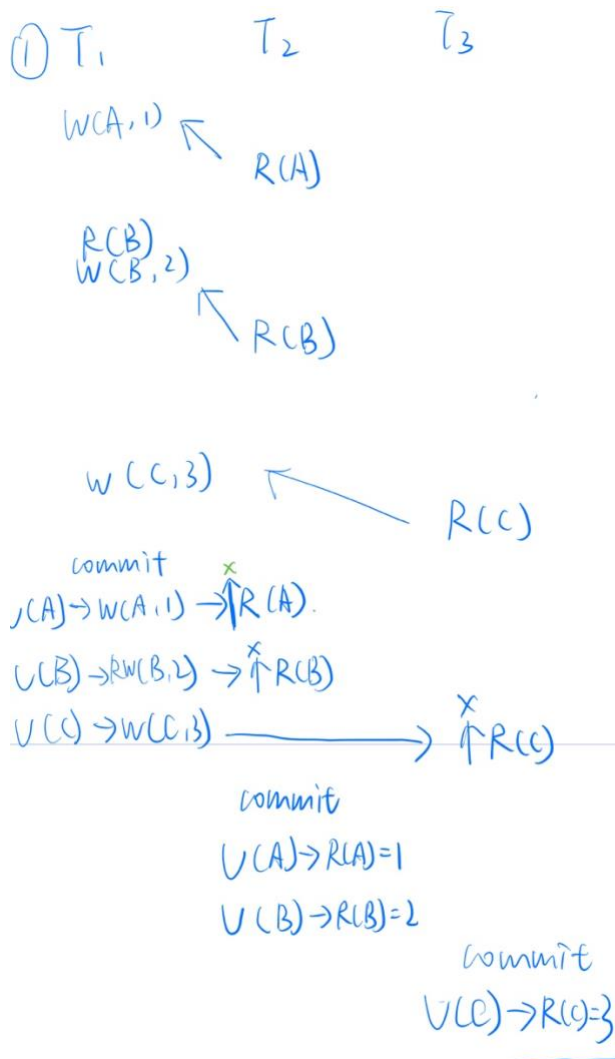 ① T₁ T₂ T₃
W(A,1)
R(A)
R(B)
W(B,2)
R(B)
W(C,3)
R(C)
commit
(A)→W(A,1)→↑R(A).
x
U(B)→RW(B,2)→↑R(B)
x
U(C)→W(C,3)→↑R(C)
x
commit
U(A)→R(A)=1
U(B)→R(B)=2
commit
U(C)→R(C)=3